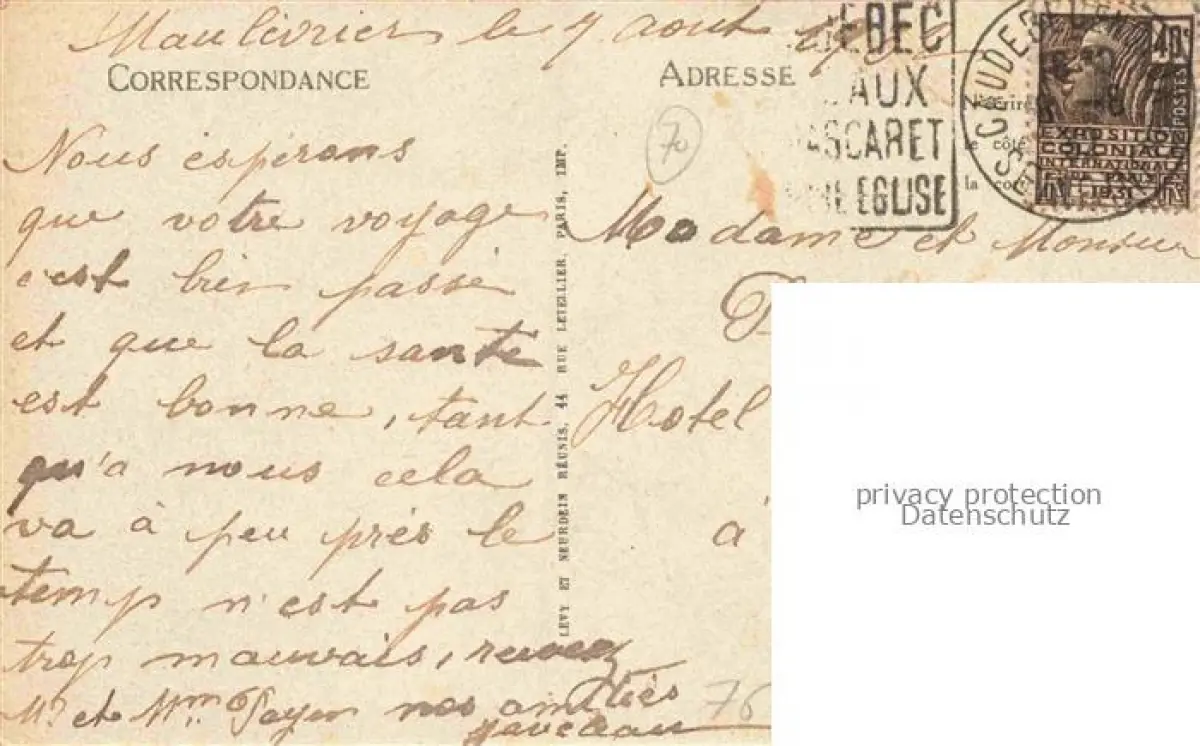 Maulévrier le 7 août
CORRESPONDANCE
ADRESSE
Nous espérons
que votre voyage
c'est bien passé
et que la santé
est bonne, tant
qu'a nous cela
va à peu près le
temp n'est pas
trop mauvais, recevez
Mr et Mme nos amitiés
LEVY ET NEURDEIN RÉUNIS, 44 RUE LETELLIER, PARIS, IMP.
70
EBEC
AUX
ASCARET
EGLISE
CAUDEB
40c
POSTES
EXPOSITION
COLONIALE
INTERNATIONALE
PARIS
1931
le côté
la
Madame et Monsieur
Hotel
à
76
privacy protection
Datenschutz